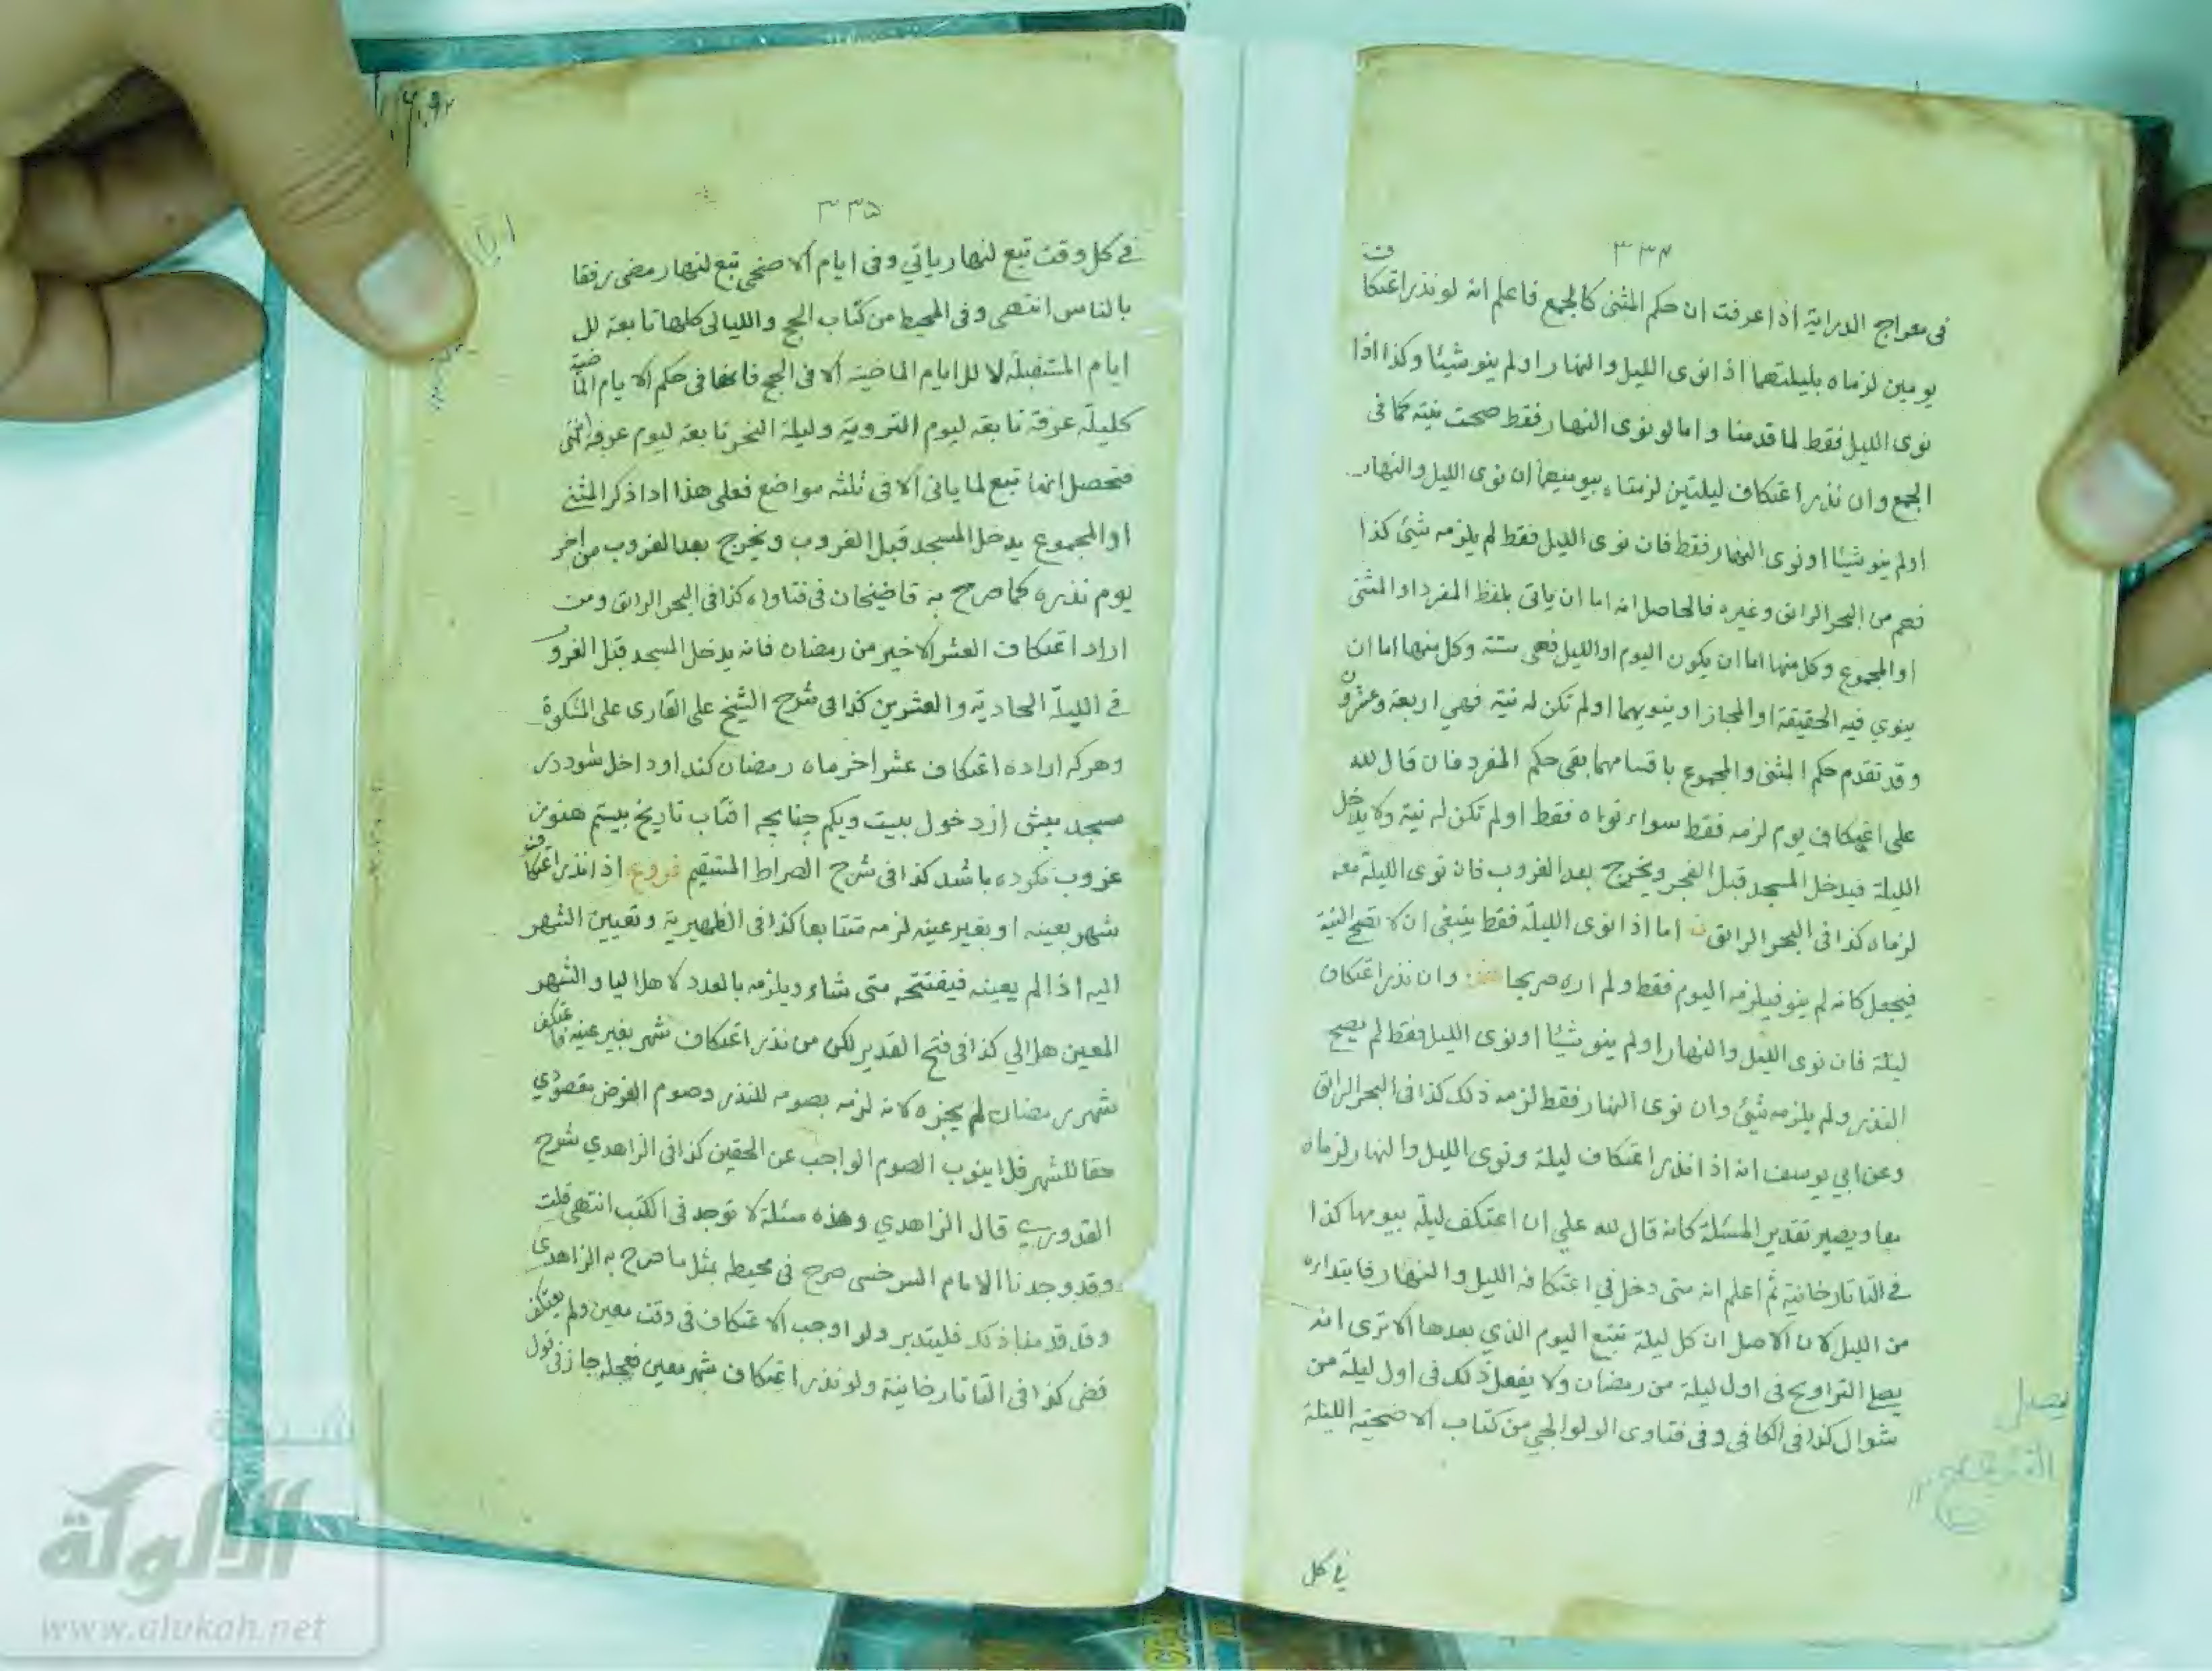 ٣٣٤
فى معراج الدراية اذا عرفت ان حكم المثنى كالجمع فاعلم انه لو نذر اعتكاف
يومين لزماه بليلتهما اذا نوى الليل والنهار او لم ينو شيئا وكذا اذا
نوى الليل فقط لما قدمنا واما لو نوى النهار فقط صحت نيته كما فى
الجمع وان نذر اعتكاف ليلتين لزمتاه بيوميهما ان نوى الليل والنهار
او لم ينو شيئا او نوى النهار فقط فان نوى الليل فقط لم يلزمه شيئ كذا
فهم من البحر الرائق وغيره فالحاصل انه اما ان ياتى بلفظ المفرد او المثنى
او المجموع وكل منها اما ان يكون اليوم او الليل فهى ستة وكل منها اما ان
ينوي فيه الحقيقة او المجاز او ينويهما او لم تكن له نية فهي اربعة وعشرون
وقد تقدم حكم المثنى والمجموع باقسامهما بقى حكم المفرد فان قال لله
على اعتكاف يوم لزمه فقط سواء نواه فقط او لم تكن له نية ولا يدخل
الليلة فيدخل المسجد قبل الفجر ويخرج بعد الغروب فان نوى الليلة معه
لزماه كذا فى البحر الرائق اما اذا نوى الليلة فقط ينبغى ان لا تصح النية
فيجعل كانه لم ينو فيلزمه اليوم فقط ولم اره صريحا وان نذر اعتكاف
ليلة فان نوى الليل والنهار او لم ينو شيئا او نوى الليل فقط لم يصح
النذر ولم يلزمه شيئ وان نوى النهار فقط لزمه ذلك كذا فى البحر الرائق
وعن ابي يوسف انه اذا نذر اعتكاف ليلة ونوى الليل والنهار لزماه
معا ويصير تقدير المسئلة كانه قال لله علي ان اعتكف ليلة بيومها كذا
في التاتارخانية ثم اعلم انه متى دخل في اعتكافه الليل والنهار فابتداره
من الليل لان الاصل ان كل ليلة تتبع اليوم الذي بعدها الا ترى انه
يصلى التراويح فى اول ليلة من رمضان ولا يفعل ذلك فى اول ليلة من
شوال كذا فى الكافى وفى فتاوى الولوالجي من كتاب الاضحية الليلة
في كل
٣٣٥
في كل وقت تبع لنهار ياتي وفى ايام الاضحى تبع لنهار مضى رفقا
بالناس انتهى وفى المحيط من كتاب الحج والليالى كلها تابعة لل
ايام المستقبلة لا للايام الماضية الا فى الحج فانها فى حكم الايام الماضية
كليلة عرفة تابعة ليوم التروية وليلة النحر تابعة ليوم عرفة انتهى
فتحصل انها تبع لما ياتى الا فى ثلثه مواضع فعلى هذا اذا ذكر المثنى
او المجموع يدخل المسجد قبل الغروب ويخرج بعد الغروب من اخر
يوم نذره كما صرح به قاضيخان فى فتاواه كذا فى البحر الرائق ومن
اراد اعتكاف العشر الاخير من رمضان فانه يدخل المسجد قبل الغروب
في الليلة الحادية والعشرين كذا فى شرح الشيخ على القارى على المشكوة
وهركه اراده اعتكاف عشر اخر ماه رمضان كند او داخل شود در
مسجد پيش از دخول بيست ويكم چنانچه افتاب تاريخ بيستم هنوز
غروب نكوده باشد كذا فى شرح الصراط المستقيم فروع اذا نذر اعتكاف
شهر بعينه او بغير عينه لزمه متتابعا كذا فى الظهيرية وتعيين الشهر
اليه اذا لم يعينه فيفتتحه متى شاء ويلزمه بالعدد لا هلاليا والشهر
المعين هلالي كذا فى فتح القدير لكن من نذر اعتكاف شهر بغير عينه فاعتكف
شهر رمضان لم يجزه لانه لزمه بصومه للنذر وصوم الفرض مقصودي
حقا للشهر فلا ينوب الصوم الواجب عن الحقين كذا فى الزاهدي شرح
القدوري قال الزاهدي وهذه مسئلة لا توجد فى الكتب انتهى قلت
وقد وجدنا الامام السرخسى صرح فى محيطه بمثل ما صرح به الزاهدى
وقد قدمنا ذلك فليتدبر ولو اوجب الاعتكاف فى وقت معين ولم يعتكف
قضى كذا فى التاتارخانية ولو نذر اعتكاف شهر معين فعجله جاز فى قول
الالوكة
www.alukah.net